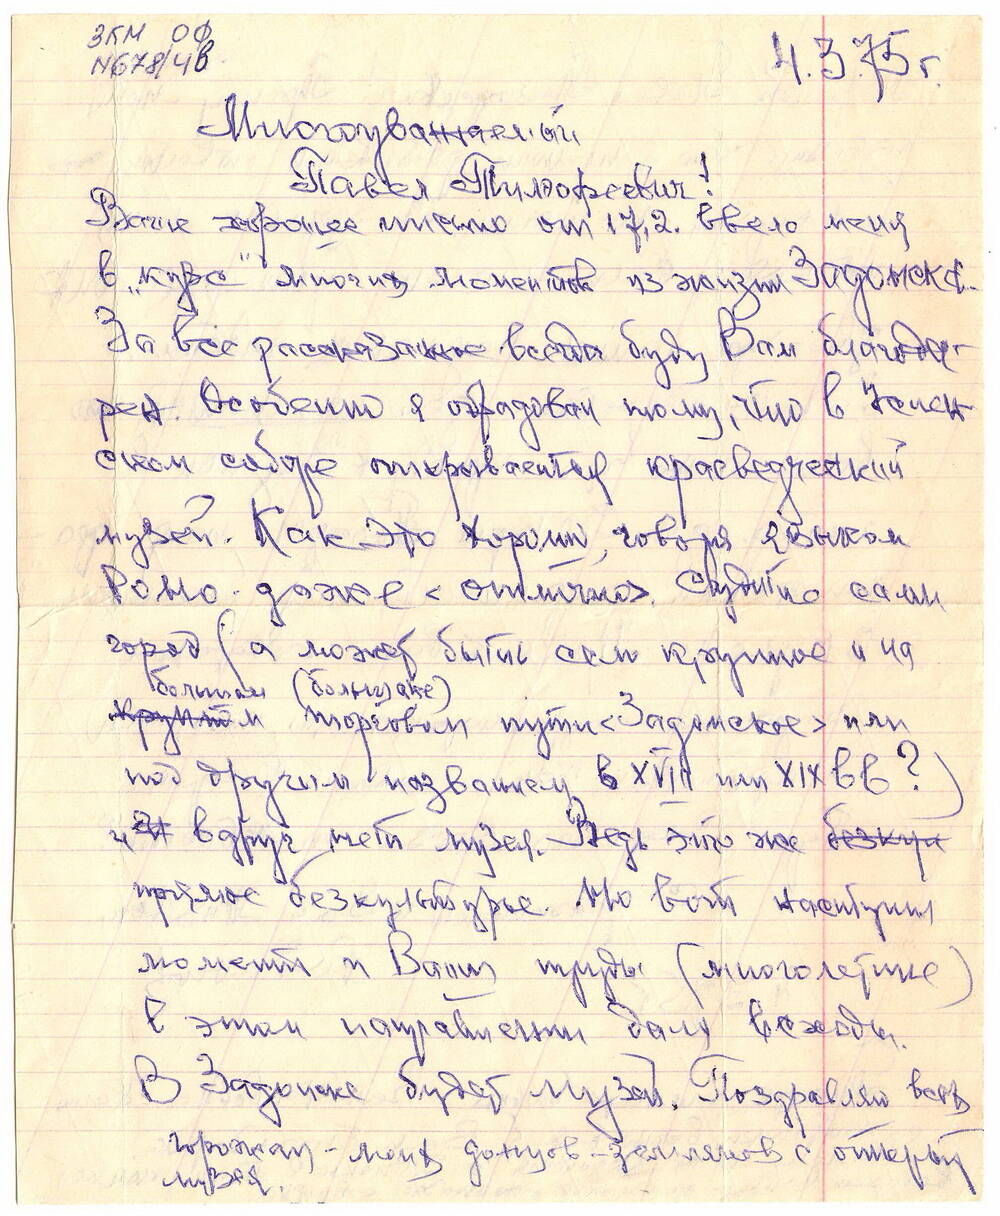 ЗКМ ОФ
N678/4в
4.3.75 г.
Многоуважаемый
Павел Тимофеевич!
Ваше хорошее письмо от 17,2. ввело меня
в „курс" многих моментов из жизни Задонска.
За все рассказанное всегда буду Вам благода-
рен. Особенно я обрадован тому, что в
ском соборе открывается краеведческий
музей. Как это хорошо, говоря языком
даже <отлично>. Судите сами
город (а может быть село крупное и на
большом (большаке)
крупном торговом пути <Задонское> или
под другим названием в XVIII или XIX вв?)
и вдруг нет музея. Ведь это же безкул
прямое безкультурье. Но вот наступил
момент и Ваши труды (многолетние)
в этом направлении дали всходы.
В Задонске будет музей. Поздравляю всех
горожан - моих донцов-земляков с открыт
музея.